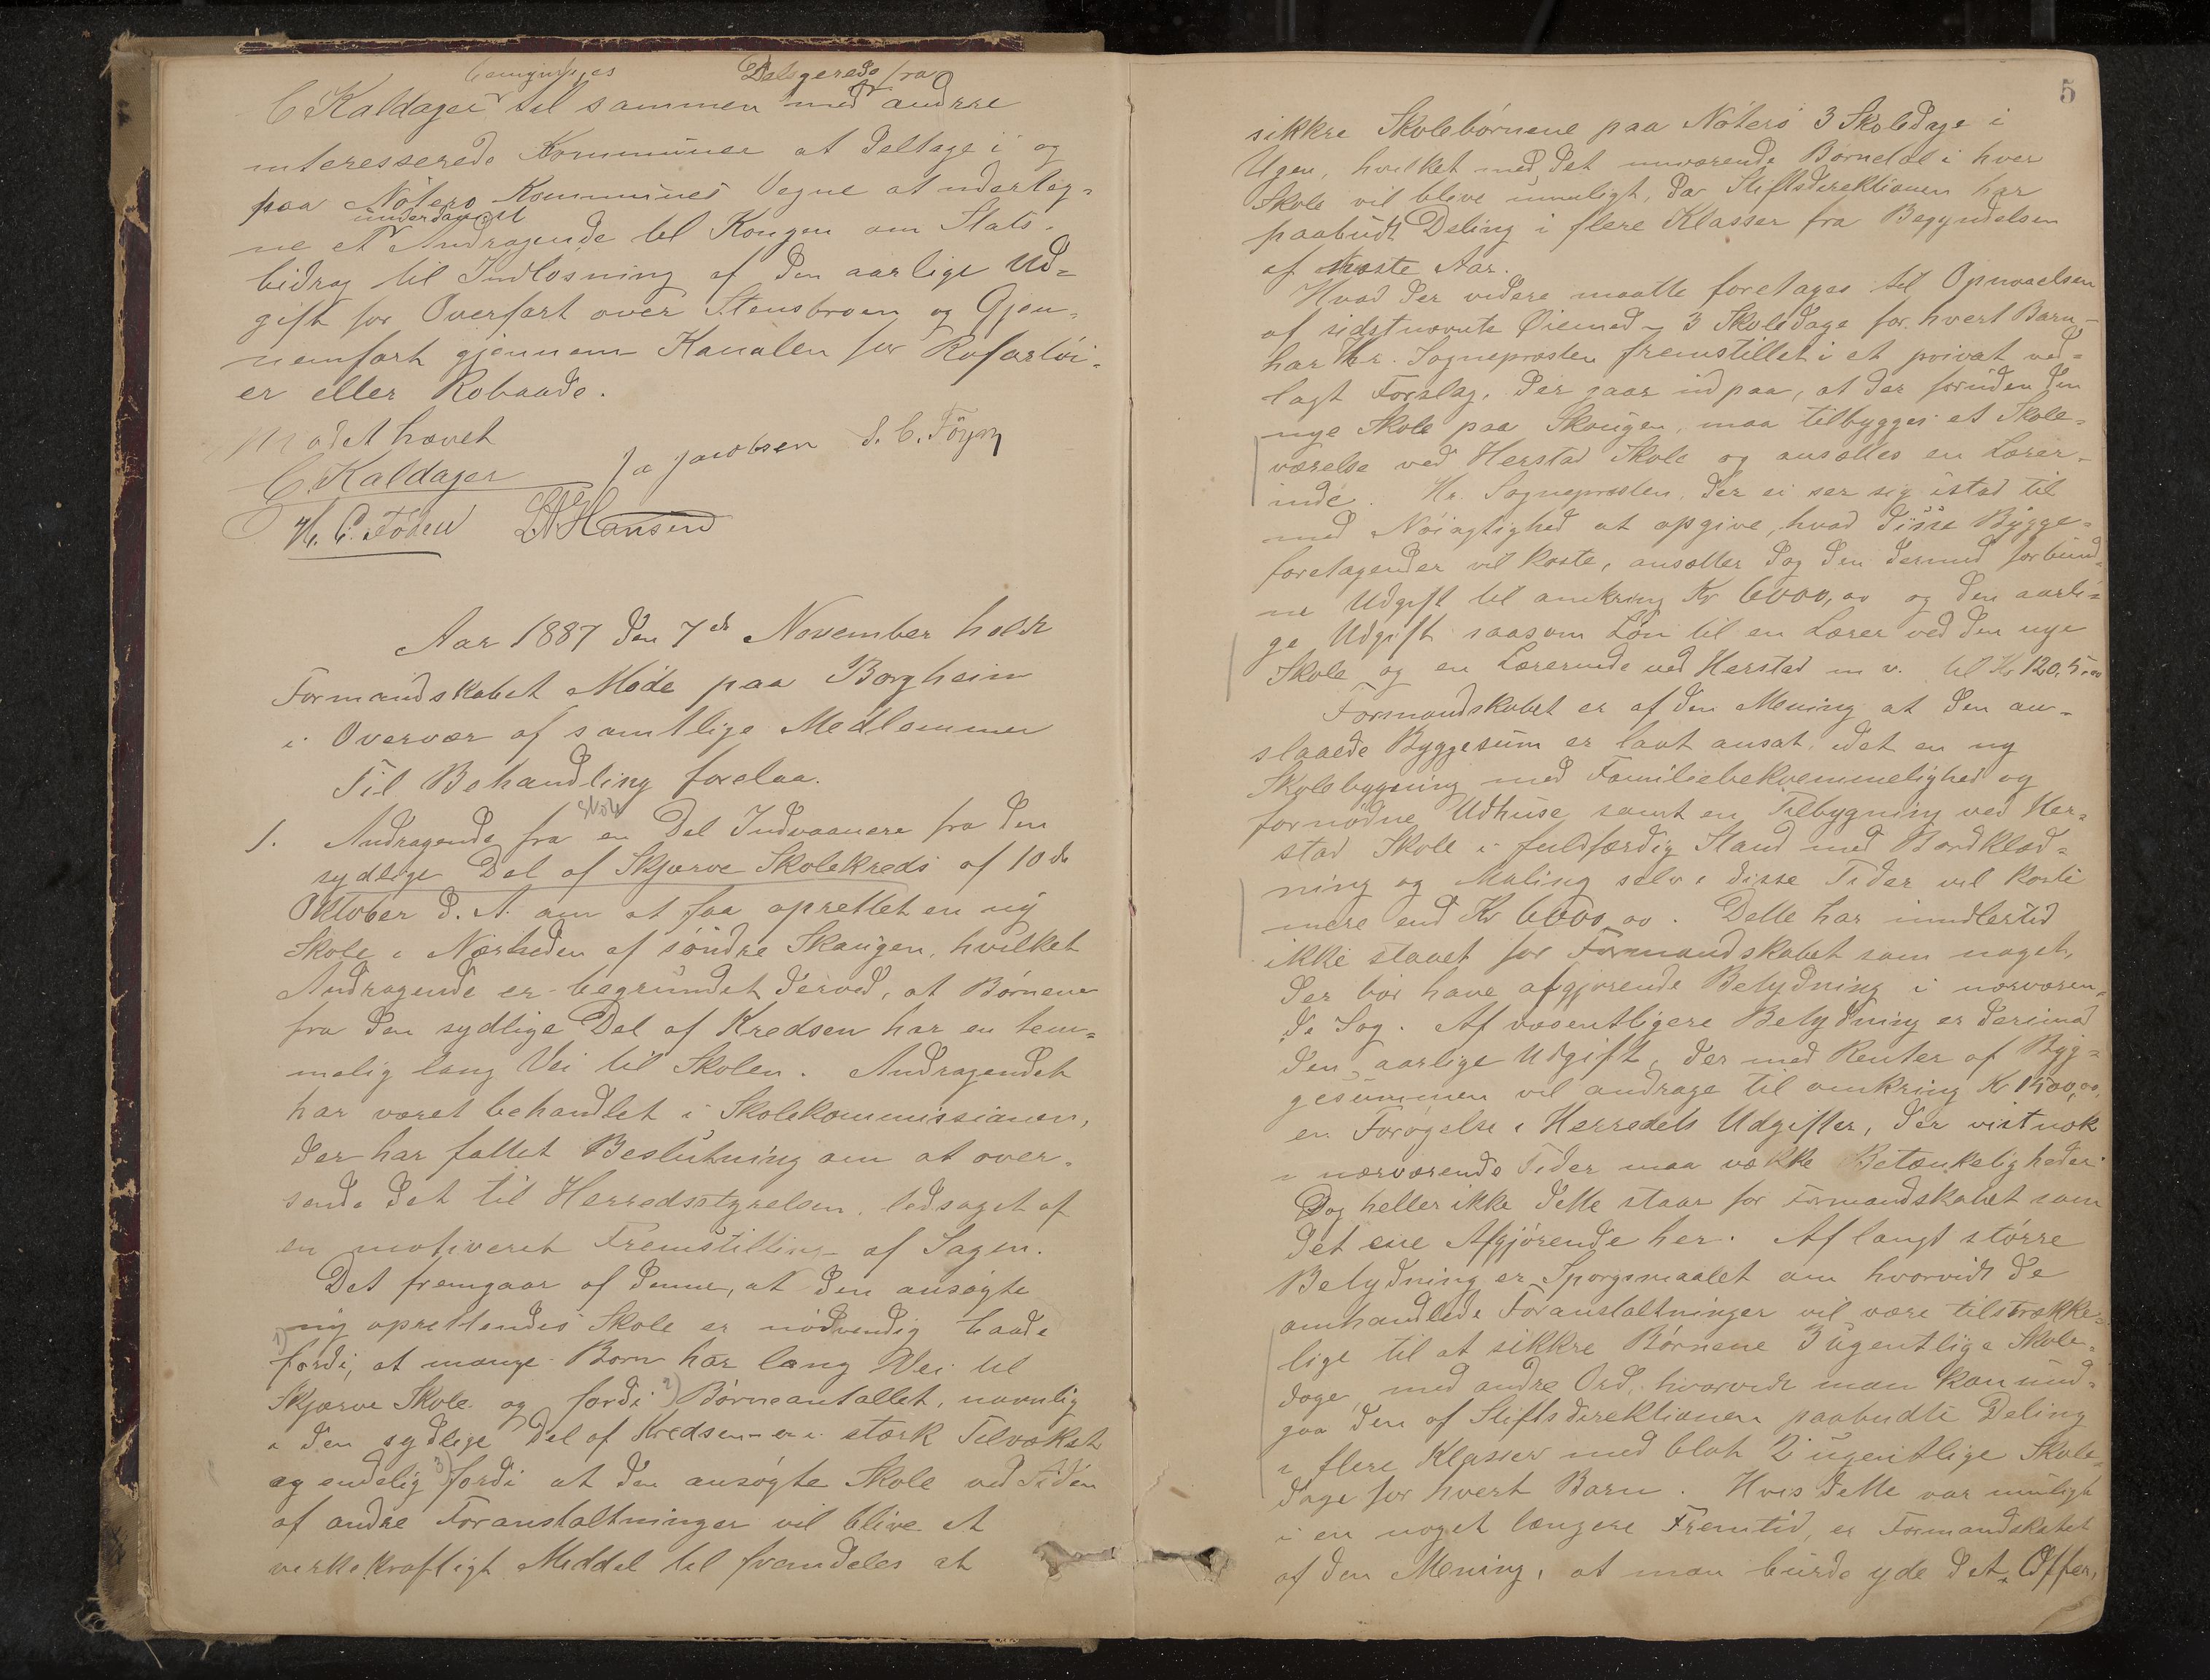 bemyndiges Delegerede fra
C Kaldager til sammen med andre
interesserede Kommuner at deltage i og
paa Nøterø Kommunes Vegne at udarbeg-
underdanigst
ne et Andragende til Kongen om Stats-
bidrag til Indløsning af den aarlige Ud-
gift for Overfart over Stensbroen og Gjen-
nemfart gjennem Kanalen for Rofartöi-
er eller Robaade.
Mødet hævet
C. Kaldager Ja Jacobsen S. C. Föyn
H. C. Foden L A Hansen
Aar 1887 den 7de November holdt
Formandskabet Møde paa Borgheim
i Overvær af samtlige Medlemmer
Til Behandling forelaa.
Skole
1. Andragende fra en Del Indvaanere fra den
sydlige Del af Skjærve Skolekreds af 10de
Oktober d. A. om at faa oprettet en ny
Skole i Nærheden af söndre Skaugen, hvilket
Andragende er begrundet derved, at Børnene
fra den sydlige Del af Kredsen har en tem-
melig lang Vei til Skolen. Andragendet
har været behandlet i Skolekommissionen,
der har fattet Beslutning om at over-
sende det til Herredsstyrelsen, ledsaget af
en motiveret Fremstilling af Sagen.
Det fremgaar af denne, at den ansøgte
ny oprettendes Skole er nödvendig baade
1) fordi, at mange Børn har lang Vei til
Skjærve Skole og fordi 2) Børneantallet, navnlig
i den sydlige Del af Kredsen - er i stærk Tilvækst
og endelig 3) fordi at den ansøgte Skole ved Siden
af andre Foranstaltninger vil blive et
virkekraftigt Middel til fremdeles at
5
sikkre Skolebörnene paa Nöterö 3 Skoledage i
Ugen, hvilket med det nuværende Børnetal i hver
Skole vil blive umuligt, da Stiftsdirektionen har
paabudt Deling i flere Klasser fra Begyndelsen
af næste Aar.
Hvad der videre maatte foretages til Opnaaelsen
af sidstnævnte Øiemed - 3 Skoledage for hvert Barn -
har Hr. Sognepresten fremstillet i et privat ved-
lagt Forslag, der gaar ud paa, at der foruden den
nye Skole paa Skougen, maa tilbygges et Skole-
værelse ved Herstad Skole og ansættes en Lærer-
inde. Hr. Sognepresten, der ei ser sig istad til
med Nöiagtighed at opgive, hvad disse Bygge-
foretagender vil koste, ansætter dog den dermed forbund-
ne Udgift til omkring Kr 6000,00 og den aarli-
ge Udgift saasom Løn til en Lærer ved den nye
Skole og en Lærerinde ved Herstad m v. til Kr 1205,00
Formandskabet er af den Mening at den an-
slaaede Byggesum er lavt ansat, idet en ny
Skolebygning med Familiebekvemmelighed og
fornödne Udhuse samt en Tilbygning ved Her-
stad Skole i fuldfærdig Stand med Bordklæd-
ning og Maling selv i disse Tider vil koste
mere end Kr 6000,00. Dette har imidlertid
ikke staaet for Formandskabet som noget,
der bör have afgjørende Betydning i nærværen-
de Sag. Af væsentligere Betydning er derimod
den aarlige Udgift, der med Renter af Byg-
gesummen vil andrage til omkring Kr 1500,00,
en Forøgelse i Herredets Udgifter, der vistnok
i nærværende Tider maa vække Betænkeligheder.
Dog heller ikke dette staar for Formandskabet som
det ene Afgjörende her. Af langt större
Betydning er Spørgsmaalet om hvorvidt de
omhandlede Foranstaltninger vil være tilstrække-
lige til at sikkre Børnene 3 ugentlige Skole-
dage, med andre Ord, hvorvidt man kan und-
gaa den af Stiftsdirektionen paabudte Deling
i flere Klasser med blot 2 ugentlige Skole-
dage for hvert Barn. Hvis dette var muligt
i en noget længere Fremtid, er Formandskabet
af den Mening, at man burde yde det Offer,